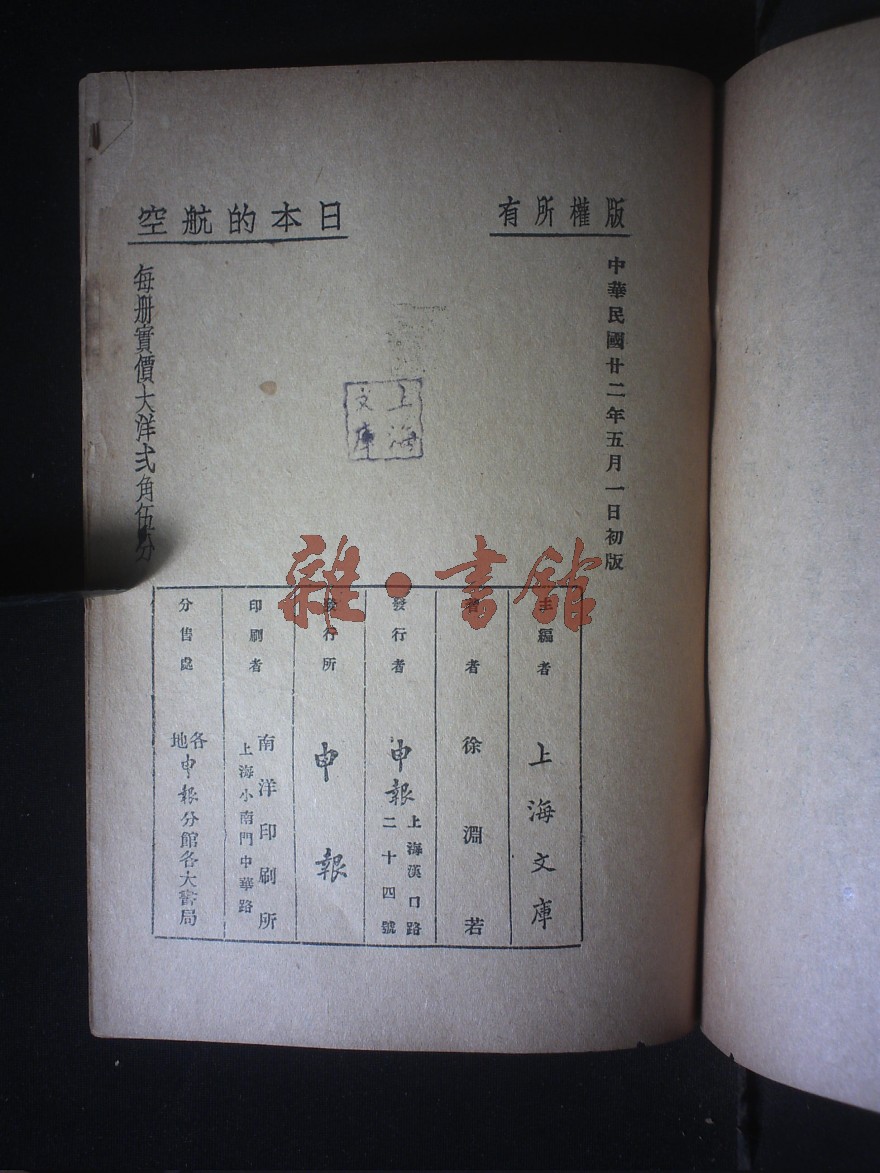 版權所有
中華民國廿二年五月一日初版
日本的航空
每册實價大洋弍角伍分
上海
文庫
雜·書館
主編者 上海文庫
著者 徐淵若
發行者 申報 上海漢口路
二十四號
發行所 申報
印刷者 南洋印刷所
上海小南門中華路
分售處 各地申報分館各大書局